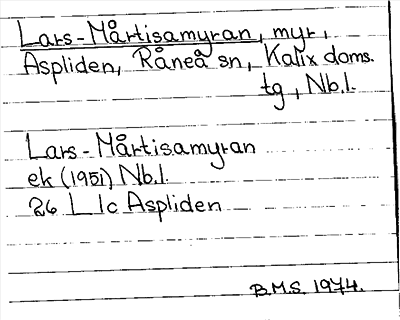 Lars-Mårtisamyran, myr,
Aspliden, Råneå sn, Kalix doms.
tg, Nb.l.
Lars-Mårtisamyran
ek (1951) Nb.l.
26 L 1c Aspliden
B.M.S. 1974.